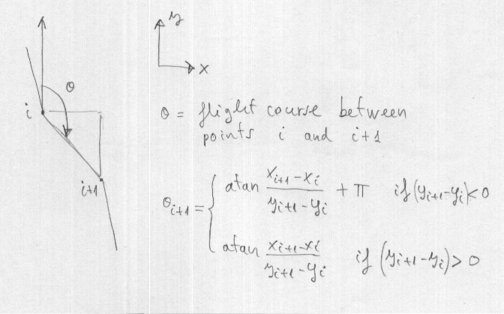 y
x
θ
i
i+1
θ = flight course between
points i and i+1
θᵢ₊₁ = { atan (xᵢ₊₁-xᵢ)/(yᵢ₊₁-yᵢ) + π if (yᵢ₊₁-yᵢ)<0
atan (xᵢ₊₁-xᵢ)/(yᵢ₊₁-yᵢ) if (yᵢ₊₁-yᵢ)>0